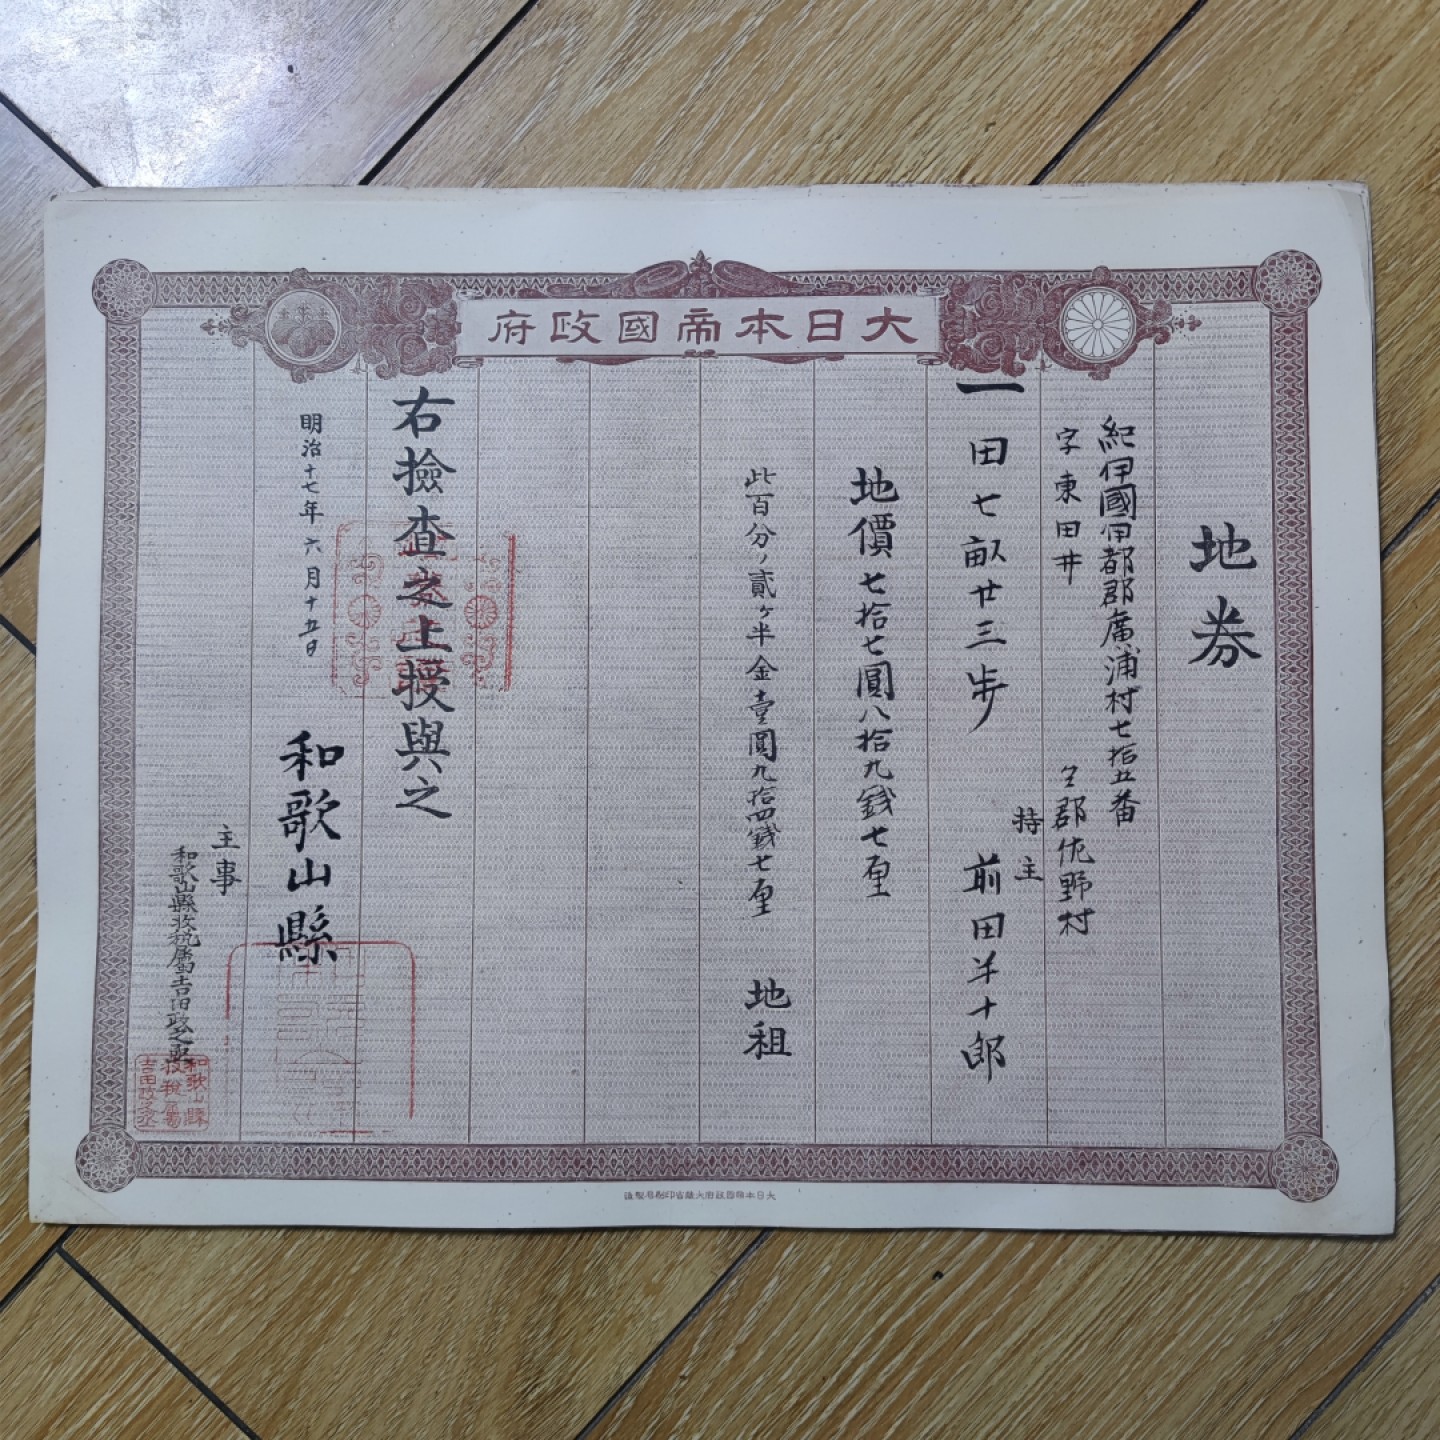 大日本帝國政府
地券
紀伊國伊都郡廣浦村七拾五番
字東田井
仝郡佐野村
一田七畝廿三歩
持主
前田半十郎
地價七拾七圓八拾九錢七厘
此百分ノ貳ヶ半金壹圓九拾四錢七厘
地租
右撿査之上授與之
明治十七年六月十五日
和歌山縣
主事
和歌山縣收税属吉田政之丞
和歌山縣
收税属
吉田政之丞
大日本帝國政府大藏省印刷局製造